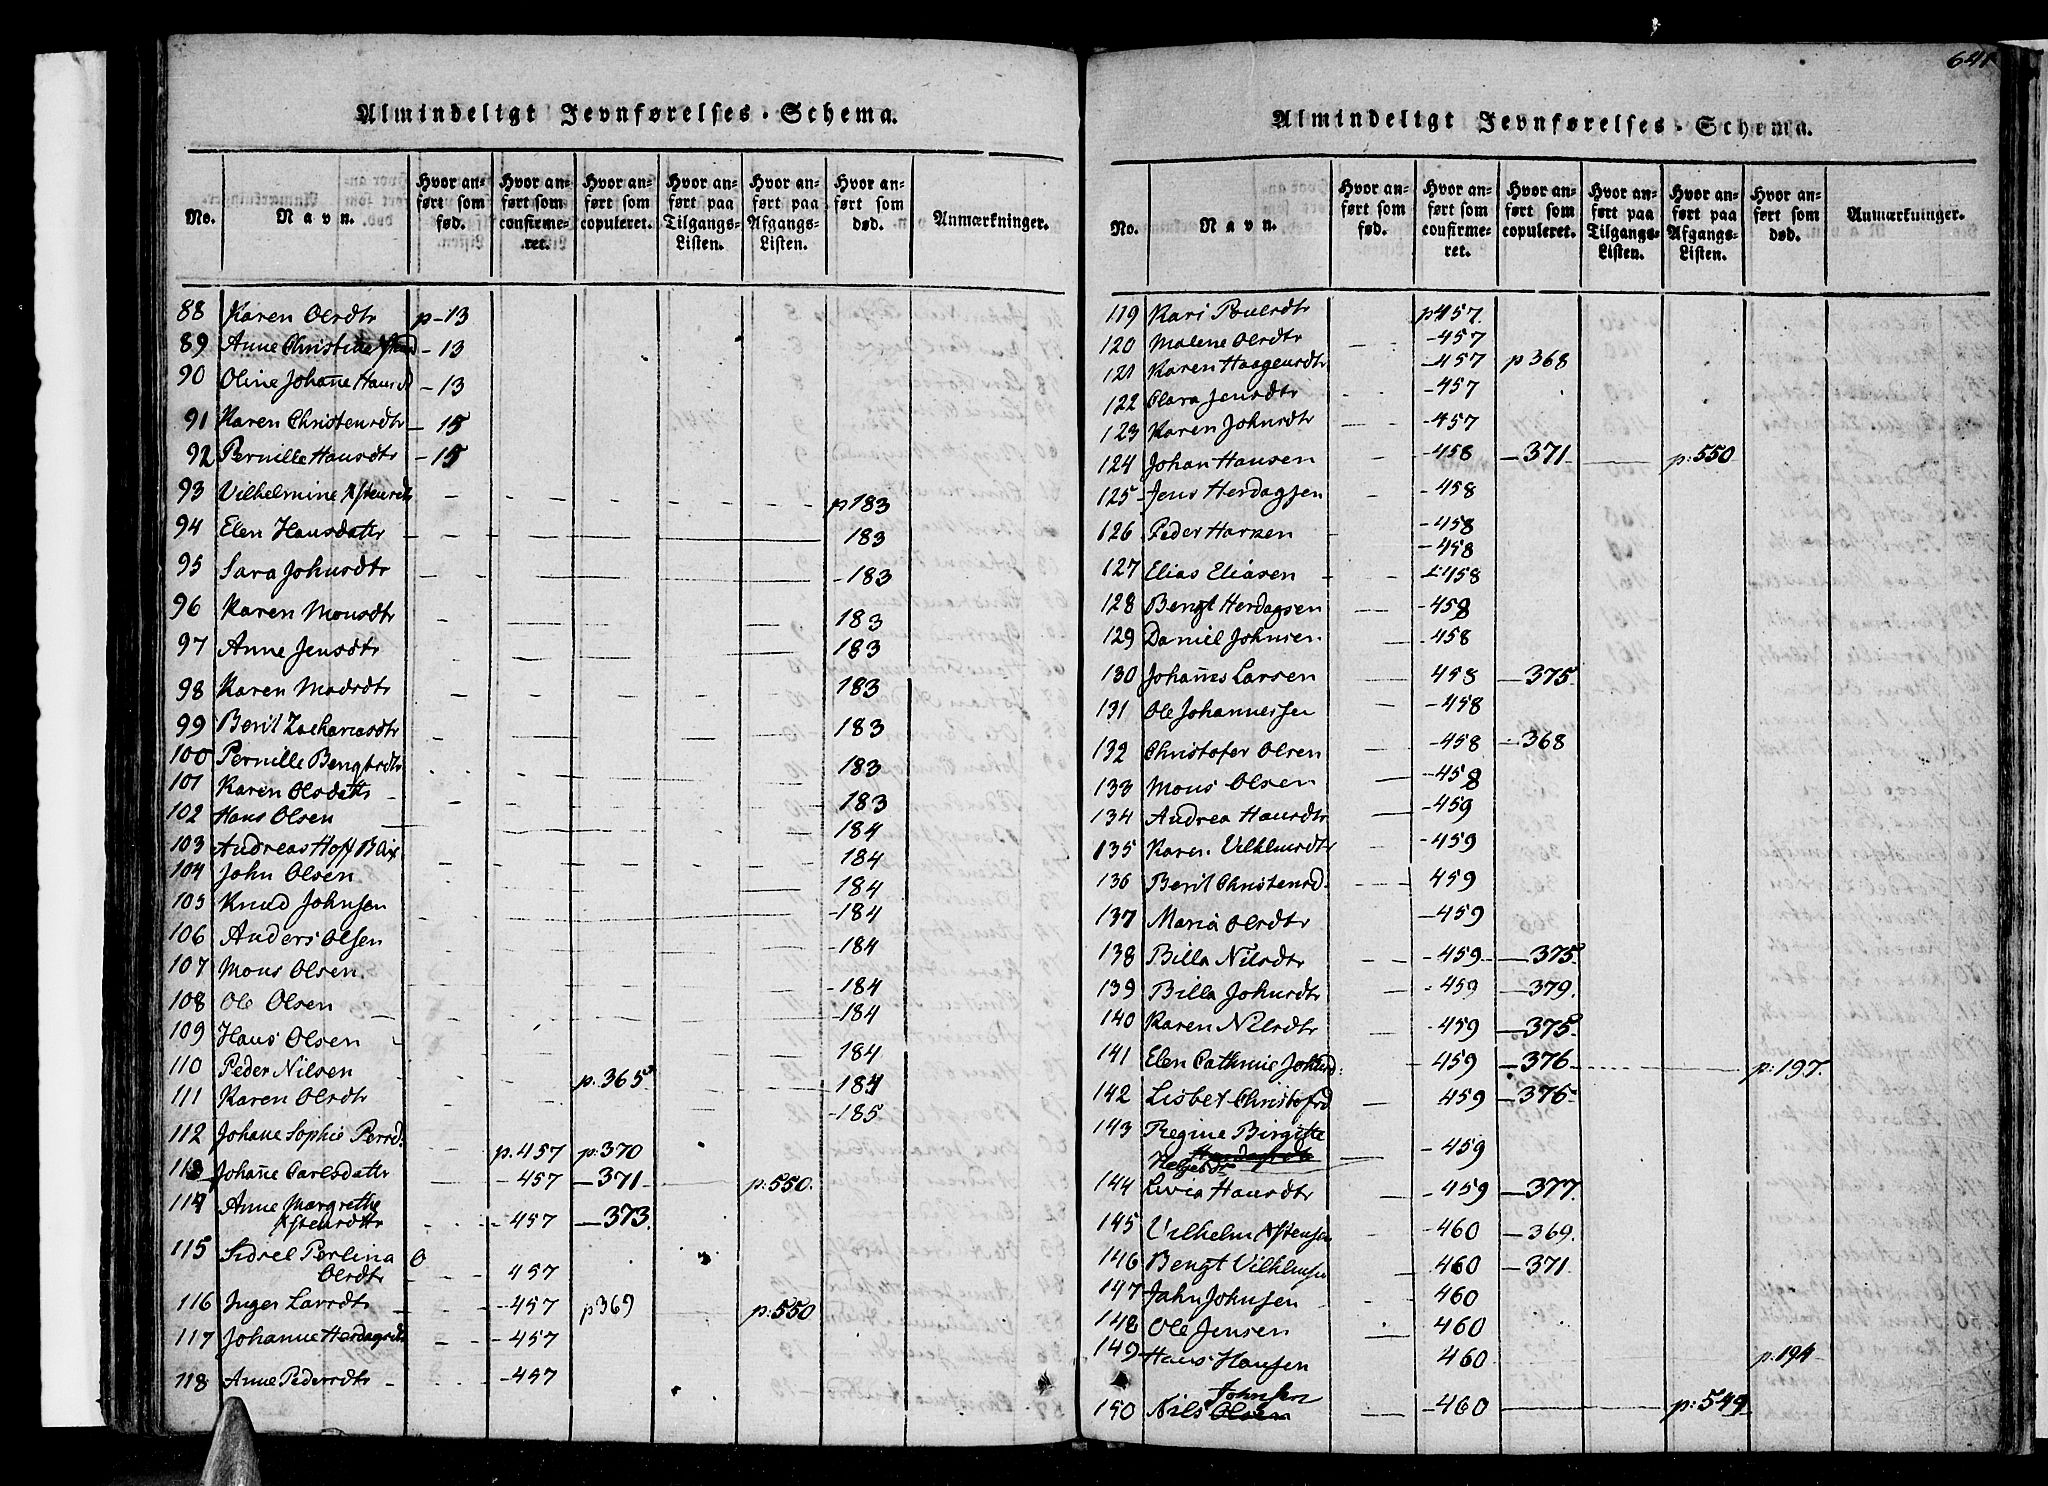 641
Almindeligt Jevnførelses-Schema.
No. Navn. Hvor anført som fød. Hvor anført som confirmeret. Hvor anført som copuleret. Hvor anført paa Tilgangs-Listen. Hvor anført paa Afgangs-Listen. Hvor anført som død. Anmærkninger.
88 Karen Olsdtr p-13
89 Anne Christine -13
90 Oline Johañe Hansd -13
91 Karen Christensdtr -15
92 Pernille Hansdtr -15
93 Vilhelmine p 183
94 Elen Hansdattr 183
95 Sara Johnsdtr -183
96 Karen Monsdtr 183
97 Anne Jensdtr 183
98 Karen Madsdtr 183
99 Berit Zachariasdtr 183
100 Pernille Bengtsdtr 183
101 Karen Olsdattr 183
102 Hans Olsen 184
103 Andreas Hoff 184
104 John Olsen 184
105 Knud Johnsen -184
106 Anders Olsen -184
107 Mons Olsen -184
108 Ole Olsen -184
109 Hans Olsen 184
110 Peder Nilsen p. 365 184
111 Karen Olsdtr -185
112 Johane Sophie Persd. p. 457 p. 370
113 Johañe Carlsdattr -457 -371 p: 550.
114 Anne Margrethe
-457 -373.
115 Sidsel Perlina
Olsdtr 457
116 Inger Larsdtr -457 p 369 p: 550
117 Johanne -457
118 Anne Pedersdtr -457
Almindeligt Jevnførelses-Schema.
No. Navn. Hvor anført som fød. Hvor anført som confirmeret. Hvor anført som copuleret. Hvor anført paa Tilgangs-Listen. Hvor anført paa Afgangs-Listen. Hvor anført som død. Anmærkninger.
119 Kari Poulsdtr p 457.
120 Malene Olsdtr -457
121 Karen Haagensdtr -457 p 368
122 Clara Jensdtr -457
123 Karen Johnsdtr -457
124 Johan Hansen -458 -371 p: 550
125 Jens Herdagsen -458
126 Peder -458
-458
127 Elias Eliasen 458
128 Bengt Herdagsen -458
129 Daniel Johnsen -458
130 Johañes Larsen 458 -375.
131 Ole Johannessen -458
132 Christofer Olsen -458 -368
133 Mons Olsen -458
134 Andrea Hansdtr -459
135 Karen Vilhelmsdtr -459
136 Berit Christensd. 459
137 Maria Olsdtr -459
138 Billa Nilsdtr -459 -375.
139 Billa Johnsdtr -459 -379.
140 Karen Nilsdtr -459 -375.
141 Elen Cathrine Johnsd: -459 -376 p: 197.
142 Lisbet Christofsd 459 -376-
143 Regine Birgitte
Helgesdr -459
144 Livia Hansdtr -459 -377.
145 Vilhelm -460 -369.
146 Bengt Vilhelmsen 460 -371
147 Jahn Johnsen 460
148 Ole Jensen 460
149 Hans Hansen 460 p. 194
Johnsen
150 Nils Olsen -460 p: 549.